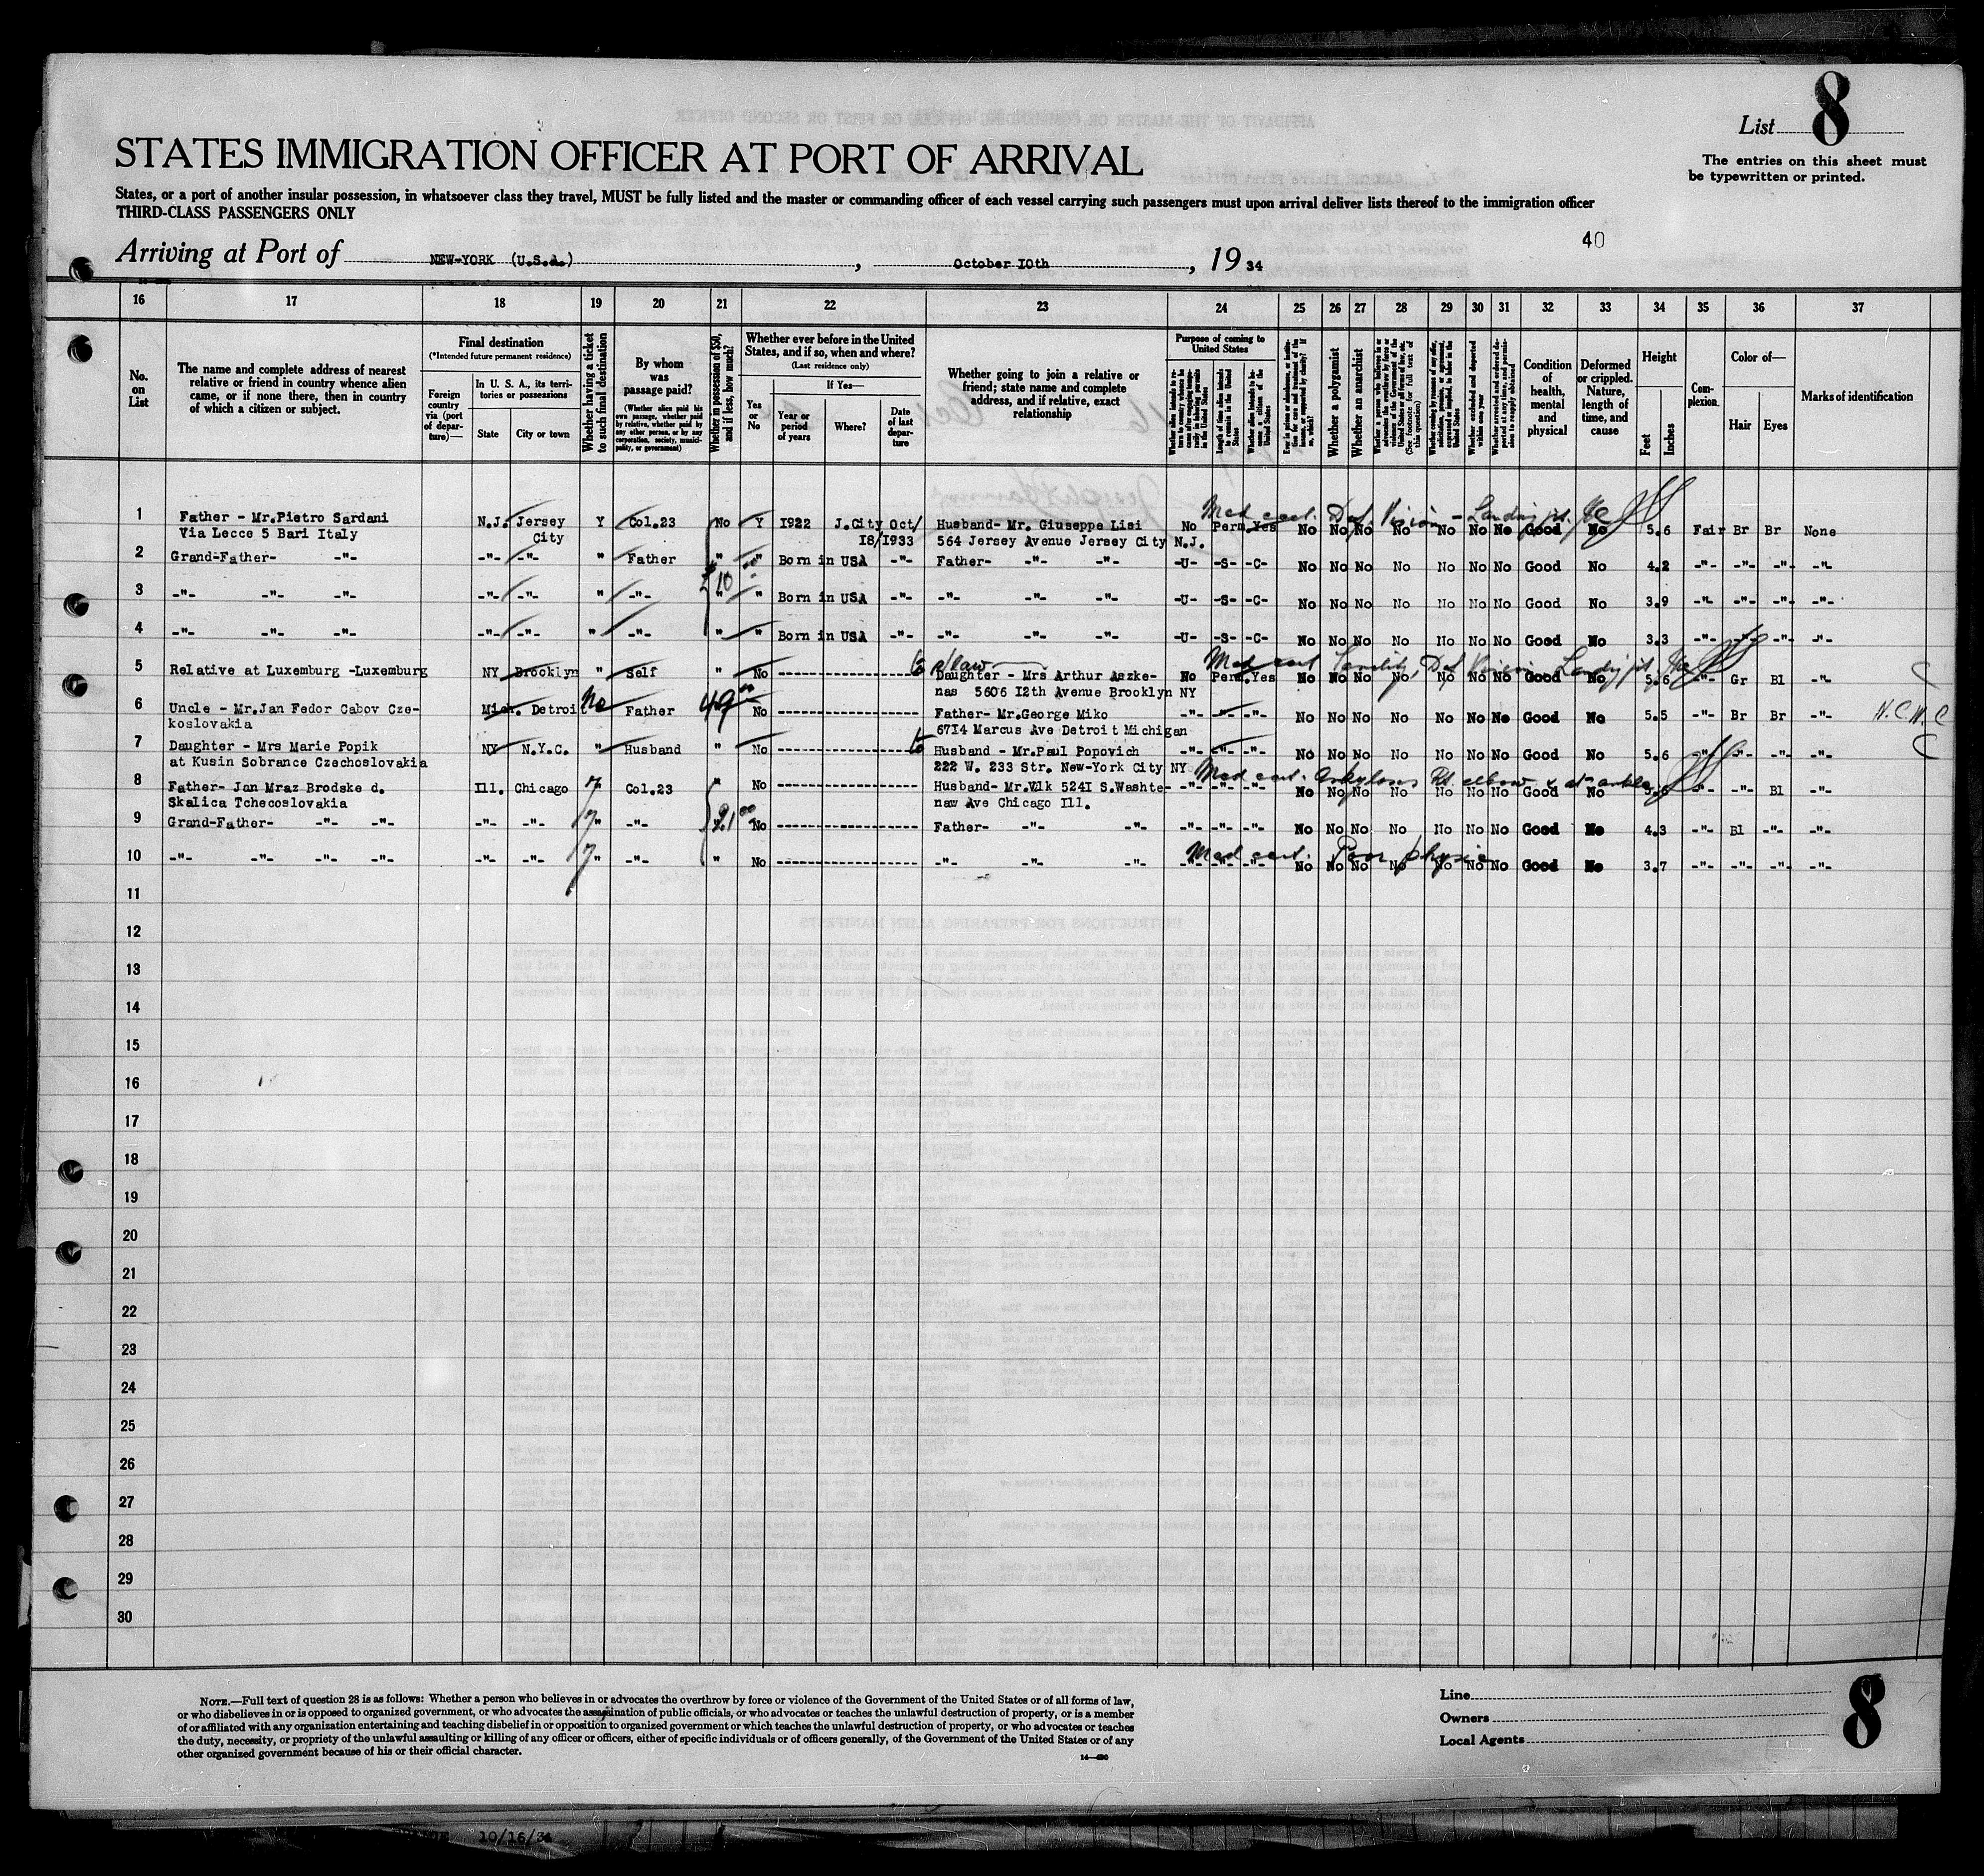 List 8
The entries on this sheet must
be typewritten or printed.
STATES IMMIGRATION OFFICER AT PORT OF ARRIVAL
States, or a port of another insular possession, in whatsoever class they travel, MUST be fully listed and the master or commanding officer of each vessel carrying such passengers must upon arrival deliver lists thereof to the immigration officer
THIRD-CLASS PASSENGERS ONLY
40
Arriving at Port of NEW-YORK (U.S.A.), October I0th, 19 34
16 17 18 19 20 21 22 23 24 25 26 27 28 29 30 31 32 33 34 35 36 37
No. on List
The name and complete address of nearest
relative or friend in country whence alien
came, or if none there, then in country
of which a citizen or subject.
Final destination
(*Intended future permanent residence)
Foreign country via (port of departure)—
In U. S. A., its territories or possessions
State
City or town
Whether having a ticket to such final destination
By whom was passage paid?
(Whether alien paid his own passage, whether paid by relative, whether paid by any other person, or by any corporation, society, municipality, or government)
Whether in possession of $50, and if less, how much?
Whether ever before in the United
States, and if so, when and where?
(Last residence only)
Yes or No
If Yes—
Year or period of years
Where?
Date of last departure
Whether going to join a relative or
friend; state name and complete
address, and if relative, exact
relationship
Purpose of coming to
United States
Length of time alien intends to remain in the United States
Whether alien intends to become a citizen of the United States
Whether a polygamist
Whether an anarchist
(See footnote for full text of this question)
Condition of health, mental and physical
Deformed or crippled. Nature, length of time, and cause
Height
Feet
Inches
Complexion
Color of—
Hair
Eyes
Marks of identification
Med cert. Def Vision - Landing
1 Father - Mr.Pietro Sardani N.J. Jersey Y Col.23 No Y I922 J.City Oct/ Husband- Mr. Giuseppe Lisi No Perm.Yes No No No No No No No Good No 5.6 Fair Br Br None
Via Lecce 5 Bari Italy City I8/I933 564 Jersey Avenue Jersey City N.J.
2 Grand-Father- -"- -"- -"- " Father " " Born in USA -"- Father- -"- -"- -U- -S- -C- No No No No No No No Good No 4.2 -"- -"- -"- -"-
10
3 -"- -"- -"- -"- -"- " -"- " " Born in USA -"- -"- -"- -"- -U- -S- -C- No No No No No No No Good No 3.9 -"- -"- -"- -"-
4 -"- -"- -"- -"- -"- " -"- " " Born in USA -"- -"- -"- -"- -U- -S- -C- No No No No No No No Good No 3.3 -"- -"- -"- -"-
s/law Med cert Senility, Def Vision Landing
5 Relative at Luxemburg -Luxemburg NY Brooklyn " Self " No Daughter - Mrs Arthur Aszke- No Perm.Yes No No No No No No No Good No 5.6 -"- Gr Bl -"-
nas 5606 I2th Avenue Brooklyn NY
6 Uncle - Mr.Jan Fedor Cabov Cze- Mich. Detroit No Father 49 No Father- Mr.George Miko -"- -"- -"- No No No No No No No Good No 5.5 -"- Br Br -"- N.C N.C
koslovakia 67I4 Marcus Ave Detroit Michigan
7 Daughter - Mrs Marie Popik NY N.Y.C. " Husband " No Husband - Mr.Paul Popovich -"- -"- -"- No No No No No No No Good No 5.6 -"- -"- -"- -"-
at Kusin Sobrance Czechoslovakia 222 W. 233 Str. New-York City NY
Med cert. Ankylosis Rt elbow & ankle
8 Father- Jan Mraz Brodske d. Ill. Chicago Col.23 " No Husband- Mr.Vlk 524I S.Washte- -"- -"- -"- No No No No No No No Good No -"- -"- Bl -"-
Skalica Tchecoslovakia naw Ave Chicago Ill.
9 Grand-Father- -"- -"- -"- -"- " -"- 21 No Father- -"- -"- -"- -"- -"- No No No No No No No Good No 4.3 -"- Bl -"- -"-
Med cert. Poor physic
10 -"- -"- -"- -"- -"- -"- " -"- " No -"- -"- -"- -"- -"- -"- No No No No No No No Good No 3.7 -"- -"- -"- -"-
11
12
13
14
15
16
17
18
19
20
21
22
23
24
25
26
27
28
29
30
NOTE.—Full text of question 28 is as follows: Whether a person who believes in or advocates the overthrow by force or violence of the Government of the United States or of all forms of law,
or who disbelieves in or is opposed to organized government, or who advocates the assassination of public officials, or who advocates or teaches the unlawful destruction of property, or is a member
of or affiliated with any organization entertaining and teaching disbelief in or opposition to organized government or which teaches the unlawful destruction of property, or who advocates or teaches
the duty, necessity, or propriety of the unlawful assaulting or killing of any officer or officers, either of specific individuals or of officers generally, of the Government of the United States or of any
other organized government because of his or their official character.
14—430
Line
Owners
Local Agents
8
10/16/34